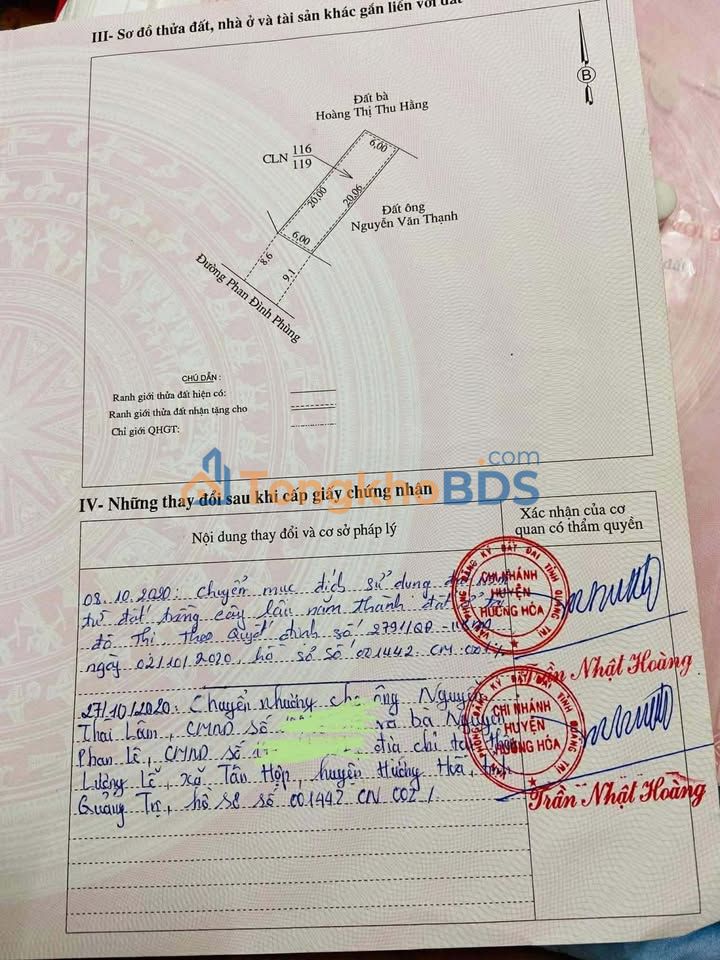 III- Sơ đồ thửa đất, nhà ở và tài sản khác gắn liền với đất
B
Đất bà
Hoàng Thị Thu Hằng
CLN 116
119
6,00
20,00
20,06
Đất ông
Nguyễn Văn Thạnh
6,00
8.6
9.1
Đường Phan Đình Phùng
CHÚ DẪN :
Ranh giới thửa đất hiện có:
Ranh giới thửa đất nhận tặng cho
Chỉ giới QHGT:
TongkhoBDS.com
IV- Những thay đổi sau khi cấp giấy chứng nhận
Nội dung thay đổi và cơ sở pháp lý
Xác nhận của cơ
quan có thẩm quyền
08.10.2020: Chuyển mục đích sử dụng
từ đất trồng cây lâu năm thành đất ở tại
đô Thị Theo Quyết định số 2791/QĐ-
ngày 02/10/2020, hồ sơ số 001442. CM.001
VĂN PHÒNG ĐĂNG KÝ ĐẤT ĐAI TỈNH QUẢNG TRỊ
CHI NHÁNH
HUYỆN
HƯỚNG HÓA
Trần Nhật Hoàng
27/10/2020: Chuyển nhượng cho ông Nguyễn
Thái Lâm, CMND số và bà Nguyễn
Phan Lê, CMND số địa chỉ tại
Lương Lễ, xã Tân Hợp, huyện Hướng Hóa, tỉnh
Quảng Trị, hồ sơ số 001442 CN 002
VĂN PHÒNG ĐĂNG KÝ ĐẤT ĐAI TỈNH QUẢNG TRỊ
CHI NHÁNH
HUYỆN
HƯỚNG HÓA
Trần Nhật Hoàng